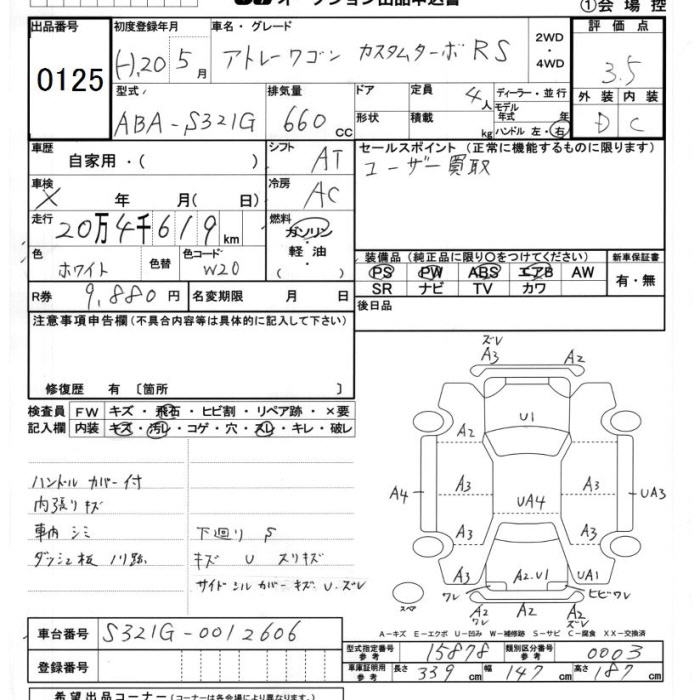 オークション出品申込書
①会場控
出品番号 初度登録年月 車名・グレード 評価点
0125 H.20 5月 アトレーワゴン カスタムターボRS 2WD・4WD 3.5
型式 排気量 ドア 定員 ディーラー・並行 外装 内装
ABA-S321G 660cc 4人 モデル年式 年 D C
形状 積載 kg ハンドル 左・右
車歴 シフト セールスポイント (正常に機能するものに限ります)
自家用・( ) AT ユーザー買取
車検 冷房
X 年 月( 日) AC
走行 燃料
20万4千619km ガソリン・軽油
色 色替 色コード ( )
ホワイト W20
装備品 (純正品に限り○をつけてください) 新車保証書
PS PW ABS エアB AW 有・無
SR ナビ TV カワ
R券 9,880円 名変期限 月 日 後日品
注意事項申告欄(不具合内容等は具体的に記入して下さい)
修復歴 有 〔箇所 〕
検査員 FW キズ・飛石・ヒビ割・リペア跡・×要
記入欄 内装 キズ・汚レ・コゲ・穴・スレ・キレ・破レ
ハンドルカバー付
内張りキズ
車内シミ 下廻りS
ダッシュ板ノリ跡 キズ U スリキズ
サイドシルカバーキズ U・ズレ
ズレ
A3 A2
U1
A2
A3 A3
A4 UA4 UA3
A3 A3
A3 A2.U1 UA1
ワレ ヒビワレ
スペア A2 ワレ A2
A-キズ E-エクボ U-凹み W-補修跡 S-サビ C-腐食 XX-交換済
車台番号 S321G-0012606
型式指定番号 参考 15878 類別区分番号 参考 0003
登録番号 車庫証明用 参考 長さ 339cm 幅 147cm 高さ 187cm
希望出品コーナー(コーナーは各会場により異なります)